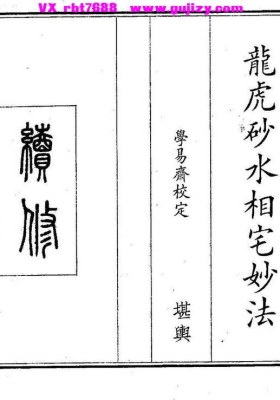 VX rbt7688 www.gujizy.com
龍虎砂水相宅妙法
學易齋校定 堪輿
續修